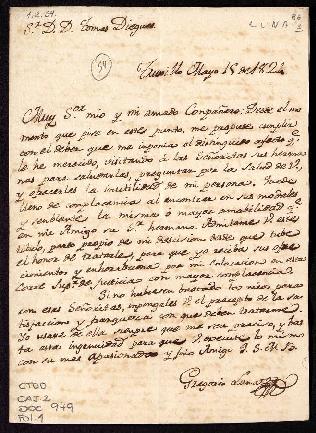 1.2.59.
LUNA
S.r D. D. Tomas Dieguez
59
Trux.llo Mayo 15 de 1824
Muy S.or mio y mi amado Compañero: Desde el mo-
mento que puse en este punto, me propuse cumplir
con el deber que me imponia al distinguido afecto q.e
le he merecido, visitando á las Señoritas sus herma-
nas para saludarlas, preguntar por la Salud de V.
y ofrecerles la inutilidad de mi persona. Quedé
lleno de complacencia al encontrar en sus modales
y semblante la misma ó mayor amabilidad q.e
en mi Amigo su S.or hermano. Admitame V. este
titulo, parto propio de mi decision desde que tube
el honor de tratarle, para que yo reciba sus ofre
cimientos y enhorabuena por mi Colocacion en esta
Corte Sup.or de Justicia con mayor complacencia.
Si no hubiesen bastado los mios para
con esas Señoritas, impongales V. el precepto de la sa-
tisfaccion y franqueza con que deben tratarme.
Yo usaré de ella siempre que me sea preciso, y bas
ta esta ingenuidad para que V. execute lo mismo
con su mas Apasionado y fino Amigo Q. S. M. B.
Gregorio Luna
CTDD
CAJ. 2
DOC 979
FOL. 1